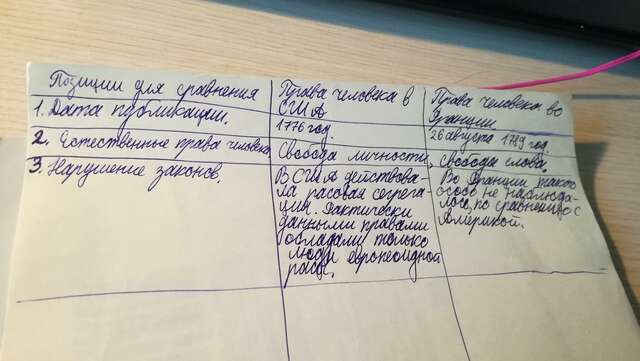 Позиции для сравнения
Права человека в
США
Права человека во
Франции
1. Дата публикации.
1776 год.
26 августа 1789 год.
2. Естественные права человека
Свобода личности
Свобода слова.
3. Нарушение законов.
В США действова-
ла расовая сегрега-
ция. Фактически
данными правами
обладали только
люди европеоидной
расы.
Во Франции такого
особо не наблюда-
лось, по сравнению с
Америкой.